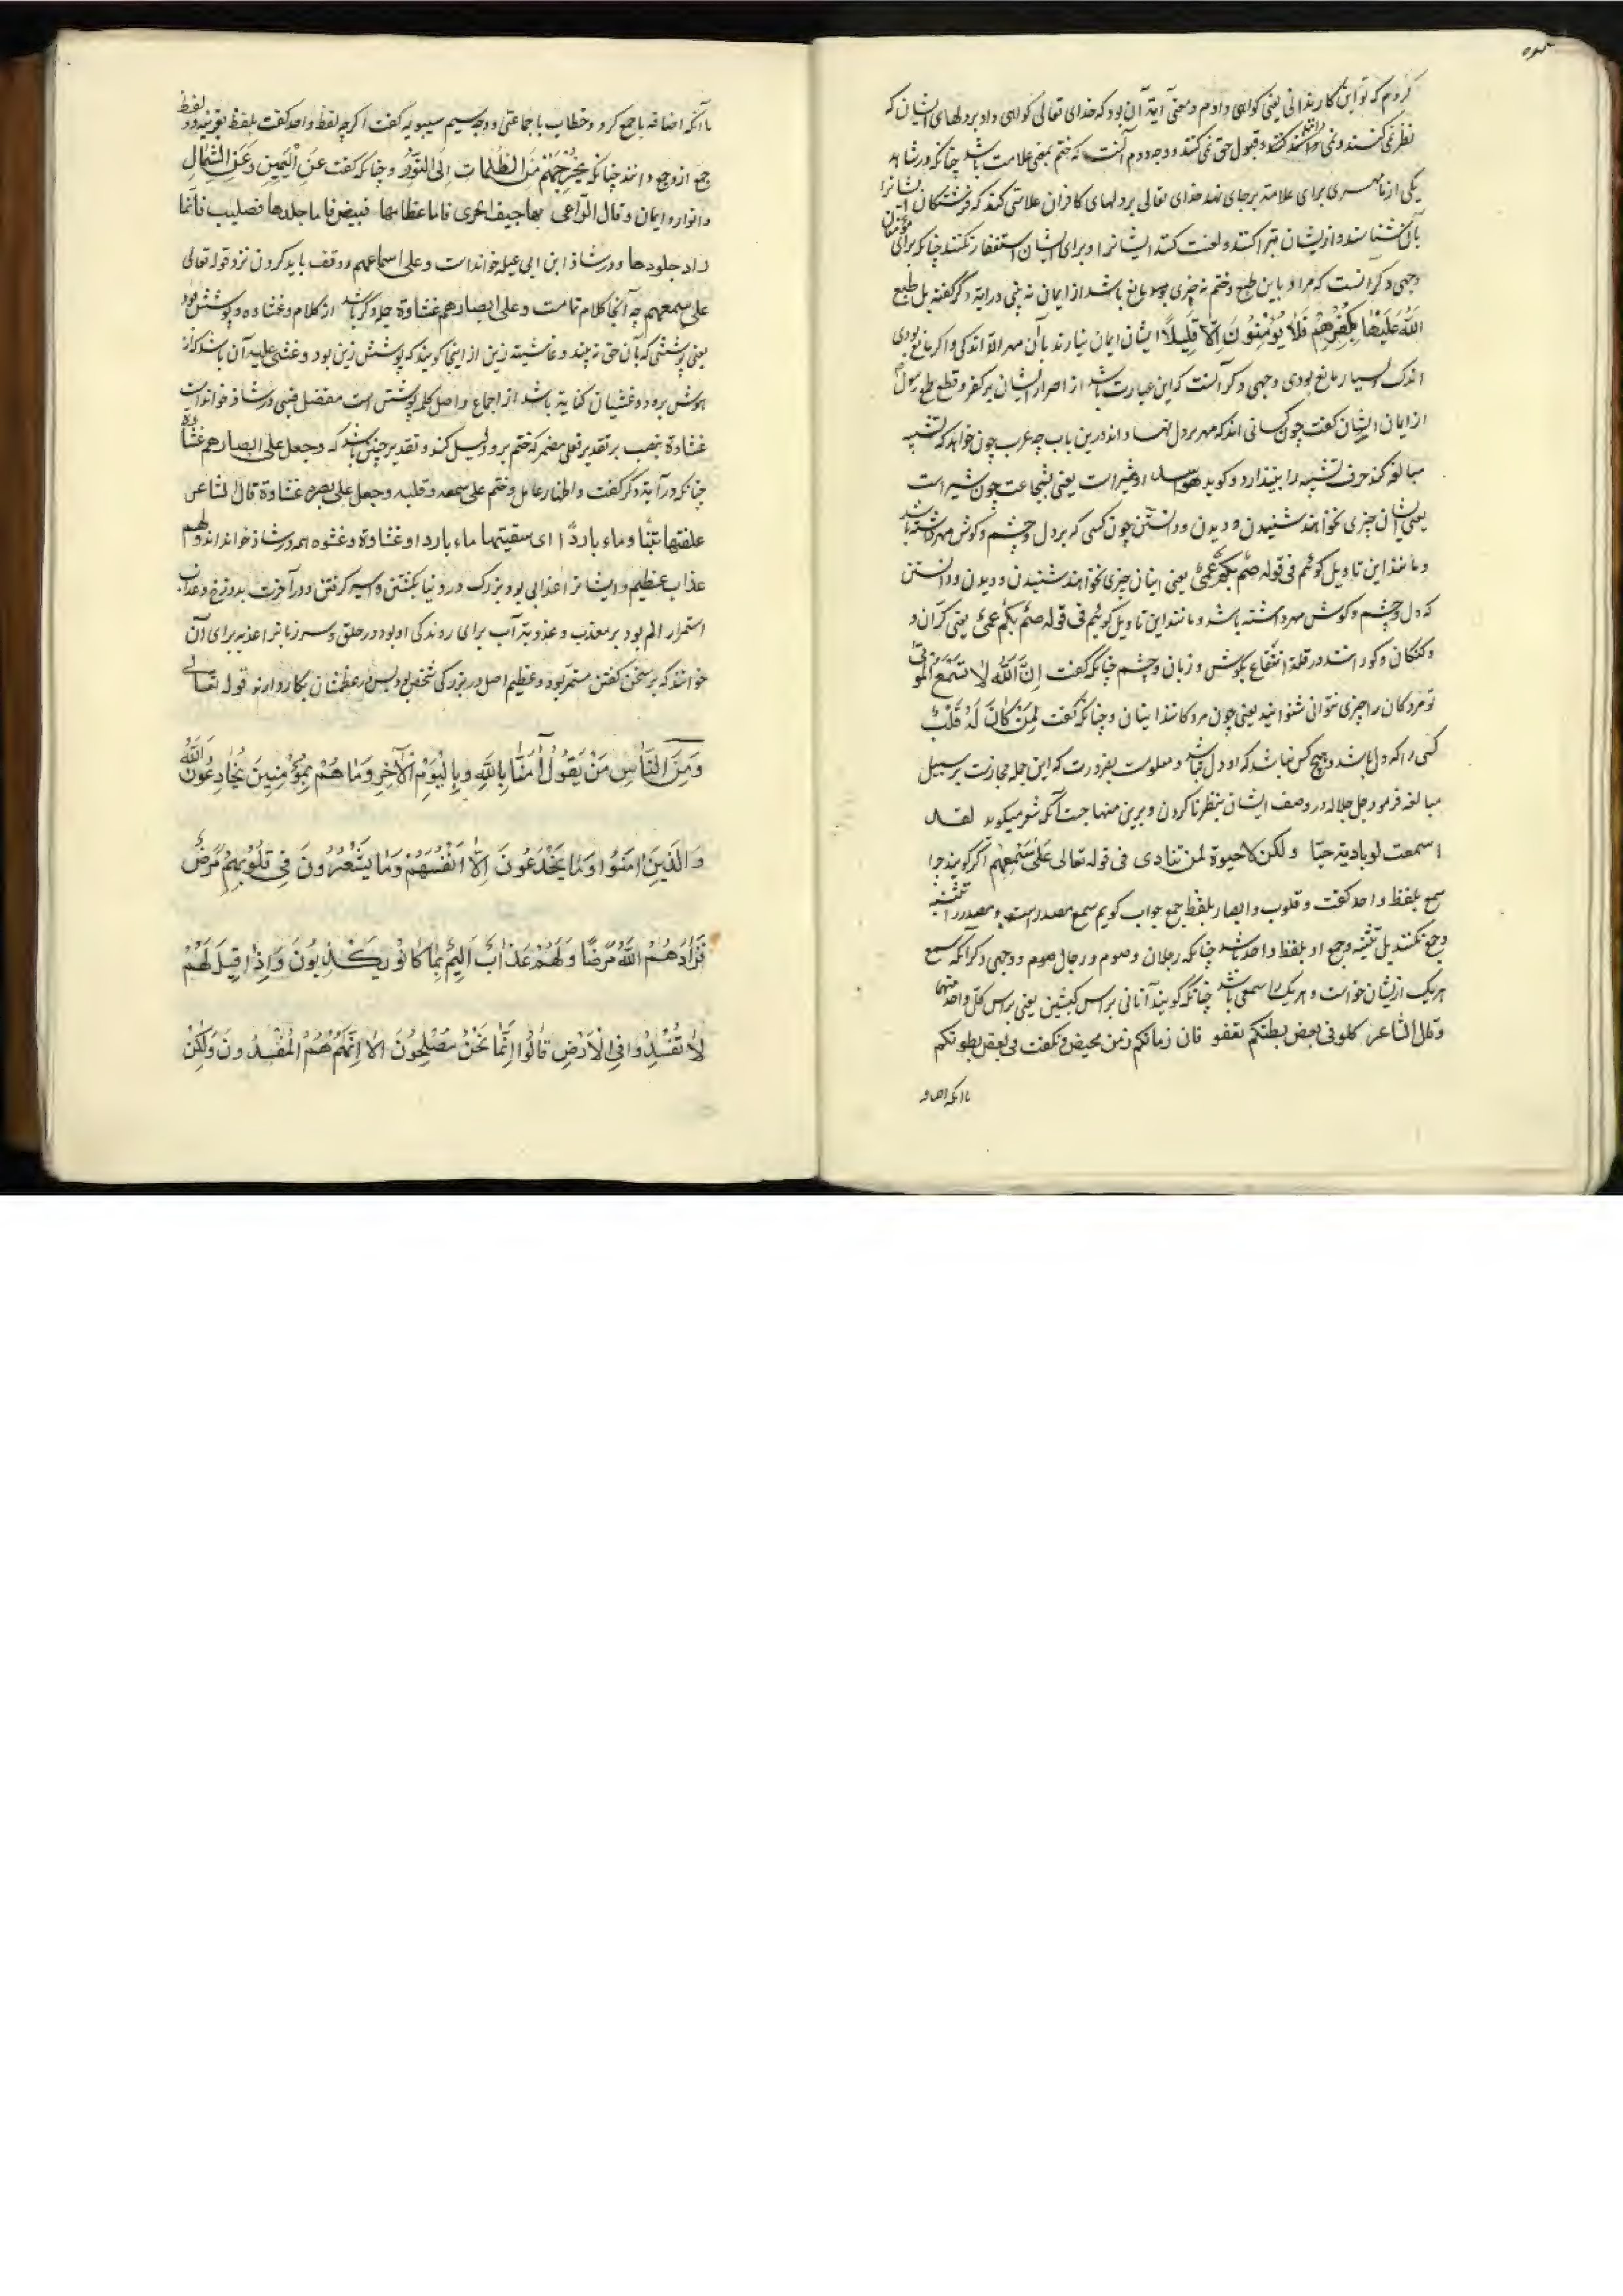 کردم که تو این کار ندانی یعنی گواهی دادم و معنی آیة آن بود که خدای تعالی گواهی داد بر دلهای ایشان که
نظر نمی کنند و نمی دانند و قبول حق نمی کنند و وجه دوم آنست که ختم بمعنی علامت باشد چنانکه در شاهد
یکی از ما مهری برای علامة بر جای نهد خدای تعالی بر دلهای کافران علامتی کند که فرشتگان ایشانرا
بآن بشناسند و از ایشان تبرا کنند و لعنت کنند ایشانرا و برای ایشان استغفار نکنند چنانکه برای مؤمنان
وجهی دگر آنست که مراد باین طبع و ختم نه چیزی بود مانع باشد از ایمان نه بینی در آیة دگر گفته بل طبع
اللّٰه علیها بکفرهم فلا یؤمنون الا قلیلا ایشان ایمان نیارند بآن مهر الا اندکی و اگر مانع بودی
اندک و بسیار مانع بودی وجهی دگر آنست که این عبارت باشد از اصرار ایشان بر کفر و قطع طمع رسول
از ایمان ایشان گفت چون کسانی اند که مهر بر دل نهاده اند درین باب چه عرب چون خواهد که تشبیه
مبالغه کند حرف تشبیه را بیندازد و گوید هو اسد او شیر است یعنی بشجاعت چون شیر است
یعنی ایشان چیزی نخواهند شنیدن و دیدن و دانستن چون کسی که بر دل و چشم و گوش مهر داشته باشد
و مانند این تاویل گوئیم فی قوله صم بکم عمی یعنی اینان چیزی نخواهند شنیدن و دیدن و دانستن
که دل و چشم و گوش مهر داشته باشد و مانند این تاویل گوئیم فی قوله صم بکم عمی یعنی کرّان و
و گنگان و کورانند در قلة انتفاع بگوش و زبان و چشم چنانکه گفت ان اللّٰه لا تسمع الموتی
تو مردگان را چیزی نتوانی شنوانید یعنی چون مردگانند اینان و چنانکه گفت لمن کان له قلب
کسی را که دل باشد و هیچ کس نباشد که او دل نباشد و معلومست بضرورت که این جمله مجازست بر سبیل
مبالغه فرمود جل جلاله در وصف ایشان بنظر نا کردن و برین منهاجست آنکه شاعر میگوید لقد
اسمعت لو نادیت حیا ولکن لا حیوة لمن تنادی فی قوله تعالی علی سمعهم اگر گویند چرا
سمع بلفظ واحد گفت و قلوب و ابصار بلفظ جمع جواب گویم سمع مصدر است و مصدر را تثنیه
و جمع نکنند بل تثنیه و جمع او بلفظ واحد باشد چنانکه رجلان و صوم و رجال صوم و وجهی دگر آنکه سمع
هر یک از ایشان خواست و هر یک را سمعی باشد چنانکه گویند آتانی براس کبشین یعنی براس کل واحد منهما
و قال الشاعر کلوا فی بعض بطنکم تعفو فان زمانکم زمن خمیص و نگفت فی بعض بطونکم
با آنکه اضافه
با آنکه اضافه با جمع کرد و خطاب با جماعتی و وجه سیم سیبویه گفت اگر چه لفظ واحد گفت بلفظ
جمع از وجع دانند چنانکه یخرجهم من الظلمات الی النور و چنانکه گفت عن الیمین و عن الشمال
و انوار و ایمان و قال الراعی بها جیف الحسری فاما عظامها فبیض فاما جلدها فصلیب فانما
راد جلودها و در شاذ ابن ابی عبله خوانداست و علی اسماعهم و وقف باید کردن نزد قوله تعالی
علی سمعهم چه آنجا کلام تمامت و علی ابصارهم غشاوة جمله دگر باشد از کلام و غشاوه و پوشش بود
یعنی پوششی که بآن حق نه بیند و غاشیته زین از اینجا گویند که پوشش زین بود و غشی علیه آن باشد که از
هوش برود و غشیان کنایة باشد از اجماع و اصل کلمه پوشش است مفضل ضبی در شاذ خوانداست
غشاوة بنصب بر تقدیر فعلی مضمر که ختم برو دلیل کند و تقدیر چنین باشد که و جعل علی ابصارهم غشاوة
چنانکه در آیة دگر گفت و اظهار عامل و ختم علی سمعه و قلبه و جعل علی بصره غشاوة قال الشاعر
علفتها تبنا و ماء باردا ای سقیتها ماء باردا و غشاوة و غشوه همه در شاذ خوانداند و لهم
عذاب عظیم و ایشانرا عذابی بود بزرگ در دنیا بکشتن و اسیر گرفتن و در آخرت بدوزخ و عذاب
استمرار الم بود بر معذب و عذوبة آب برای روندگی او بود در حلق و سر زبانرا عذبه برای آن
خوانند که بر سخن گفتن مستمر بود و عظیم اصل در بزرگی شخص بود پس در عظم شان بکار دارند قوله تعالی
وَمِنَ النَّاسِ مَنْ یَقُولُ آمَنَّا بِاللَّهِ وَبِالْیَوْمِ الْآخِرِ وَمَا هُمْ بِمُؤْمِنِینَ یُخَادِعُونَ اللَّهَ
وَالَّذِینَ آمَنُوا وَمَا یَخْدَعُونَ إِلَّا أَنْفُسَهُمْ وَمَا یَشْعُرُونَ فِی قُلُوبِهِمْ مَرَضٌ
فَزَادَهُمُ اللَّهُ مَرَضًا وَلَهُمْ عَذَابٌ أَلِیمٌ بِمَا کَانُوا یَکْذِبُونَ وَإِذَا قِیلَ لَهُمْ
لَا تُفْسِدُوا فِی الْأَرْضِ قَالُوا إِنَّمَا نَحْنُ مُصْلِحُونَ أَلَا إِنَّهُمْ هُمُ الْمُفْسِدُونَ وَلَکِنْ